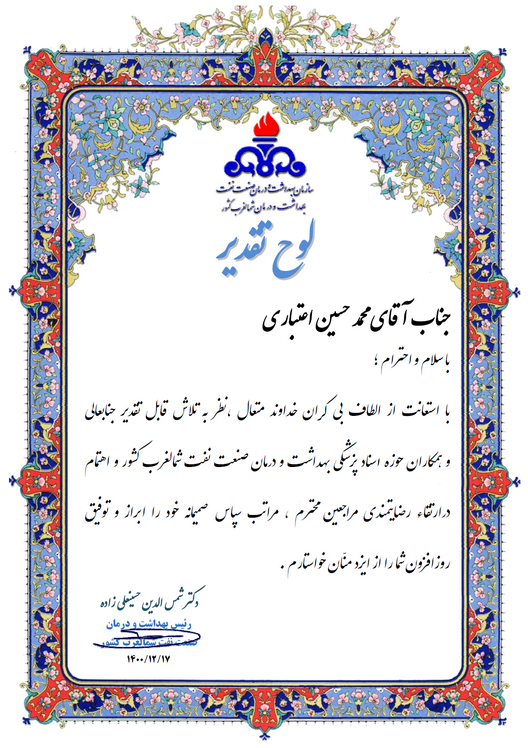 سازمان بهداشت و درمان صنعت نفت
بهداشت و درمان شمالغرب کشور
لوح تقدیر
جناب آقای محمد حسین اعتباری
باسلام و احترام ؛
با استعانت از الطاف بی کران خداوند متعال ،نظر به تلاش قابل تقدیر جنابعالی
و همکاران حوزه اسناد پزشکی بهداشت و درمان صنعت نفت شمالغرب کشور و اهتمام
درارتقاء رضایتمندی مراجعین محترم ، مراتب سپاس صمیمانه خود را ابراز و توفیق
روزافزون شما را از ایزد منّان خواستارم .
دکتر شمس الدین حسینعلی زاده
رئیس بهداشت و درمان
صنعت نفت شمالغرب کشور
۱۴۰۰/۱۲/۱۷